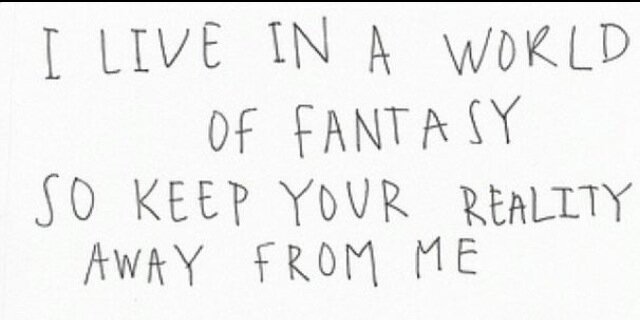 I LIVE IN A WORLD
OF FANTASY
SO KEEP YOUR REALITY
AWAY FROM ME